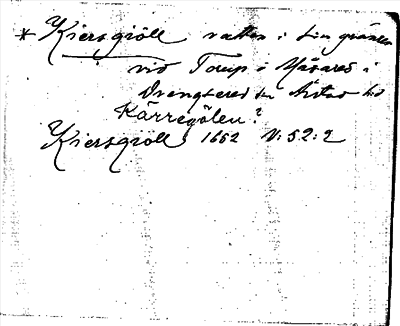 * Kiersgiöll vatten i s:n gränsen
vid Torup i Yäsared i
Drengsered sn Årstad hd
Kärregölen?
Kiersgiöll 1652 N:52:2